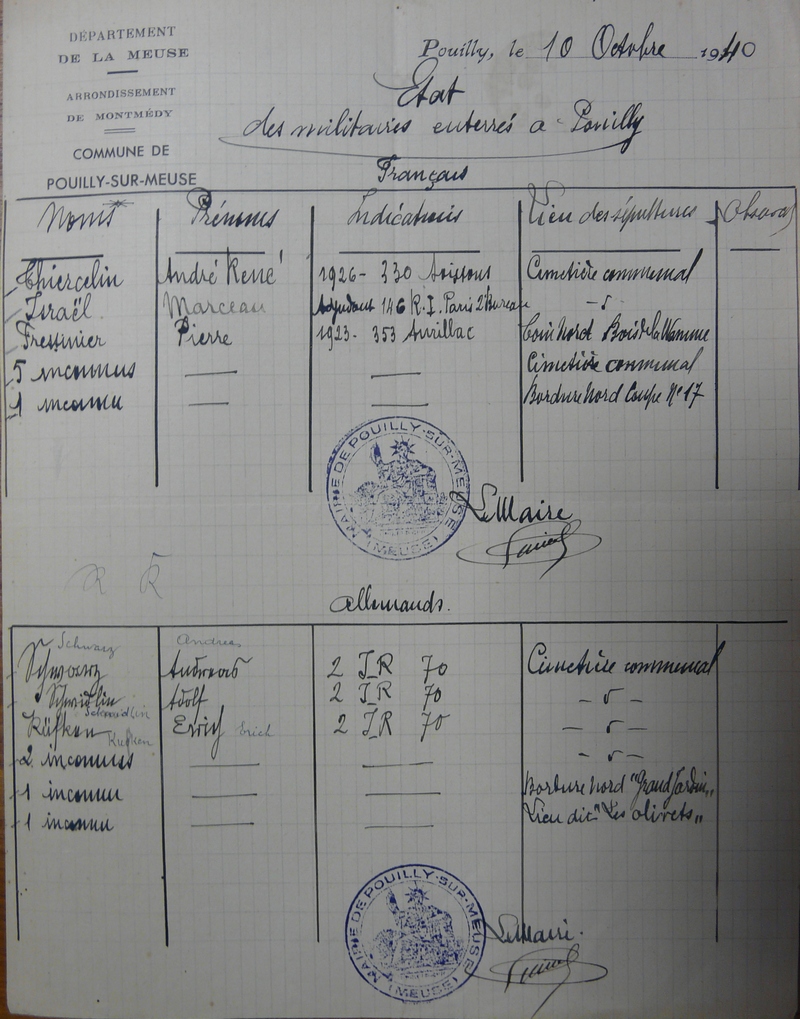 DÉPARTEMENT
DE LA MEUSE
ARRONDISSEMENT
DE MONTMÉDY
COMMUNE DE
POUILLY-SUR-MEUSE
Pouilly, le 10 Octobre 1940
Etat
des militaires enterrés a Pouilly
Français
Noms Prénoms Indications Lieu des sépultures Observ
Thiercelin André René 1926 - 330 Soissons Cimetière communal
Israël Marceau Adjudant 146 R.I. Paris 2e Bureau - d -
Fressinier Pierre 1923 - 353 Aurillac Coin Nord Bois de la Wamme
5 inconnus — — Cimetière communal
1 inconnu — — Bordure Nord Coupe N° 17
MAIRIE DE POUILLY-SUR-MEUSE
(MEUSE)
Le Maire
Allemands.
Schwarz Andreas
Schwarz Andreas 2 I R 70 Cimetière communal
Schmidlin Adolf 2 I R 70 - d -
Schmidlin
Küfken Errich Erich 2 I R 70 - d -
Küfken
2 inconnus — — - d -
1 inconnu — — Bordure Nord "Grand Jardin"
1 inconnu — — Lieu dit "Les olivets"
MAIRIE DE POUILLY-SUR-MEUSE
(MEUSE)
Le Maire.